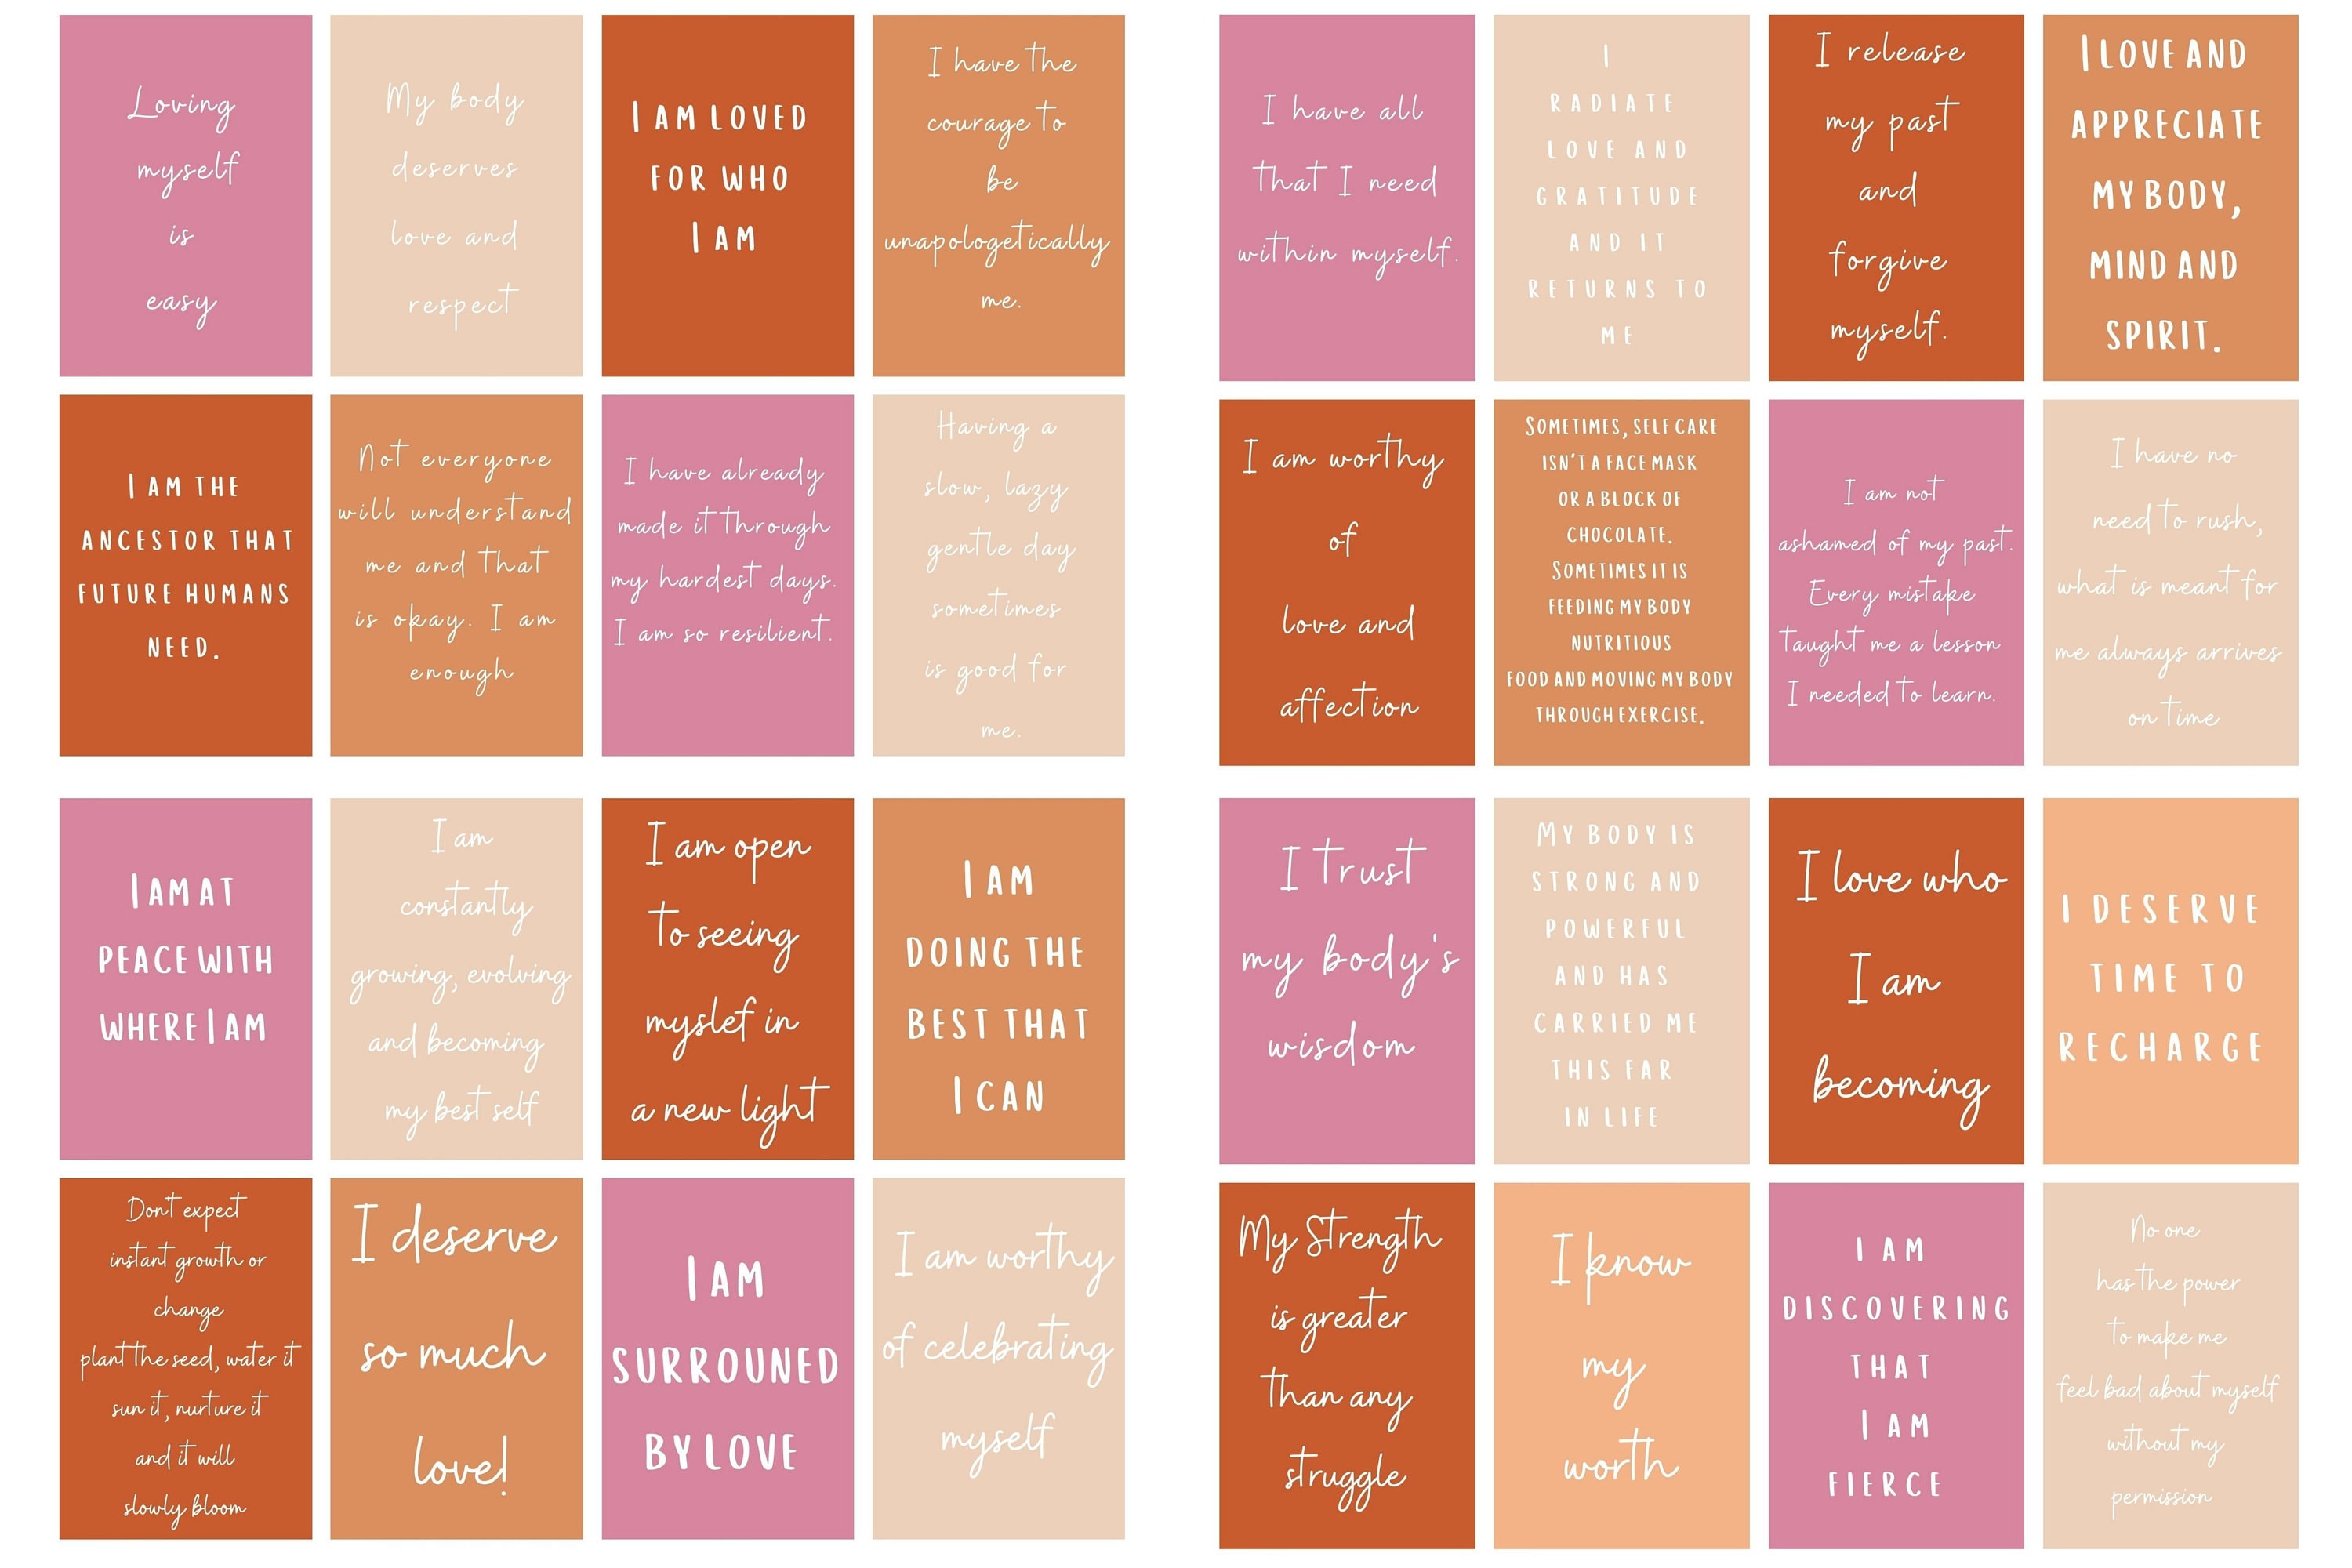 Loving
myself
is
easy
My body
deserves
love and
respect
I AM LOVED
FOR WHO
I AM
I have the
courage to
be
unapologetically
me.
I AM THE
ANCESTOR THAT
FUTURE HUMANS
NEED.
Not everyone
will understand
me and that
is okay. I am
enough
I have already
made it through
my hardest days.
I am so resilient.
Having a
slow, lazy
gentle day
sometimes
is good for
me.
I have all
that I need
within myself.
I
RADIATE
LOVE AND
GRATITUDE
AND IT
RETURNS TO
ME
I release
my past
and
forgive
myself.
I LOVE AND
APPRECIATE
MY BODY,
MIND AND
SPIRIT.
I am worthy
of
love and
affection
SOMETIMES, SELF CARE
ISN'T A FACE MASK
OR A BLOCK OF
CHOCOLATE.
SOMETIMES IT IS
FEEDING MY BODY
NUTRITIOUS
FOOD AND MOVING MY BODY
THROUGH EXERCISE.
I am not
ashamed of my past.
Every mistake
taught me a lesson
I needed to learn.
I have no
need to rush,
what is meant for
me always arrives
on time
I AM AT
PEACE WITH
WHERE I AM
I am
constantly
growing, evolving
and becoming
my best self
I am open
to seeing
myslef in
a new light
I AM
DOING THE
BEST THAT
I CAN
Don't expect
instant growth or
change
plant the seed, water it
sun it, nurture it
and it will
slowly bloom
I deserve
so much
love!
I AM
SURROUNED
BY LOVE
I am worthy
of celebrating
myself
I trust
my body's
wisdom
MY BODY IS
STRONG AND
POWERFUL
AND HAS
CARRIED ME
THIS FAR
IN LIFE
I love who
I am
becoming
I DESERVE
TIME TO
RECHARGE
My Strength
is greater
than any
struggle
I know
my
worth
I AM
DISCOVERING
THAT
I AM
FIERCE
No one
has the power
to make me
feel bad about myself
without my
permission